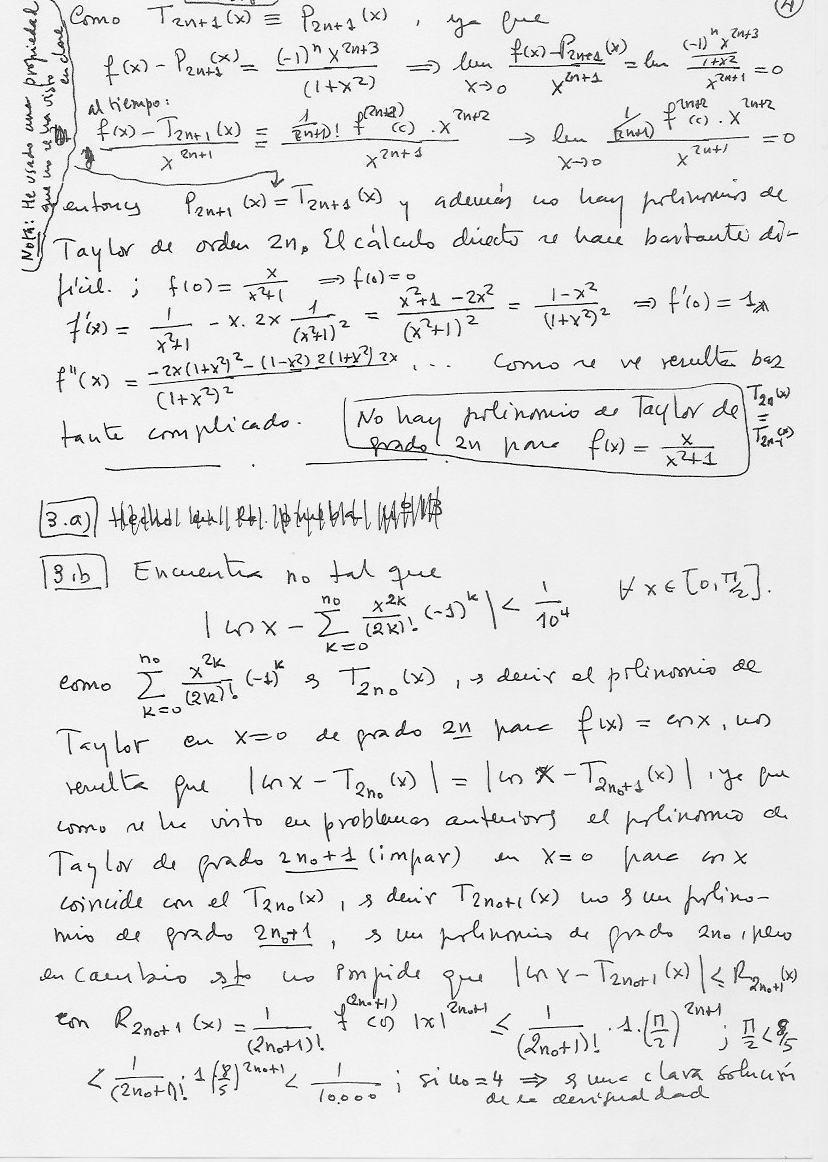 4
Como T_{2n+1}(x) ≡ P_{2n+1}(x), ya que
f(x) - P_{2n+1}(x) = \frac{(-1)^n x^{2n+3}}{(1+x^2)} ⟹ lim_{x→0} \frac{f(x)-P_{2n+1}(x)}{x^{2n+1}} = lim \frac{\frac{(-1)^n x^{2n+3}}{1+x^2}}{x^{2n+1}} = 0
al tiempo:
\frac{f(x) - T_{2n+1}(x)}{x^{2n+1}} ≡ \frac{\frac{1}{(2n+2)!} f^{(2n+2)}(c) · x^{2n+2}}{x^{2n+1}} → lim_{x→0} \frac{\frac{1}{(2n+2)} f^{2n+2}(c) · x^{2n+2}}{x^{2n+1}} = 0
Nota: He usado una propiedad
que no se ha visto
en clase
entonces P_{2n+1}(x) = T_{2n+1}(x) y además no hay polinomios de
Taylor de orden 2n. El cálculo directo se hace bastante di-
fícil. ; f(0) = \frac{x}{x^2+1} ⟹ f(0) = 0
f'(x) = \frac{1}{x^2+1} - x. 2x \frac{1}{(x^2+1)^2} = \frac{x^2+1-2x^2}{(x^2+1)^2} = \frac{1-x^2}{(1+x^2)^2} ⟹ f'(0) = 1
f''(x) = \frac{-2x(1+x^2)^2 - (1-x^2) 2(1+x^2) 2x}{(1+x^2)^2} ... Como se ve resulta bas
tante complicado.
No hay polinomio de Taylor de
grado 2n para f(x) = \frac{x}{x^2+1}
T_{2n}(x)
=
T_{2n-1}(x)
3.a)
3.b Encuentra no tal que
|cos x - \sum_{k=0}^{n_0} \frac{x^{2k}}{(2k)!} (-1)^k | < \frac{1}{10^4} ∀ x ∈ [0, π/2].
como \sum_{k=0}^{n_0} \frac{x^{2k}}{(2k)!} (-1)^k es T_{2n_0}(x), es decir el polinomio de
Taylor en x=0 de grado 2n para f(x) = cos x, nos
resulta que |cos x - T_{2n_0}(x)| = |cos x - T_{2n_0+1}(x)|, ya que
como se ha visto en problemas anteriores el polinomio de
Taylor de grado 2n_0+1 (impar) en x=0 para cos x
coincide con el T_{2n_0}(x), es decir T_{2n_0+1}(x) no es un polino-
mio de grado 2n_0+1, es un polinomio de grado 2n_0, pero
en cambio esto no impide que |cos x - T_{2n_0+1}(x)| ≤ R_{2n_0+1}(x)
con R_{2n_0+1}(x) = \frac{1}{(2n_0+1)!} f^{(2n_0+1)}(c) |x|^{2n_0+1} ≤ \frac{1}{(2n_0+1)!} · 1 · (\frac{π}{2})^{2n+1} ; \frac{π}{2} < 8/5
< \frac{1}{(2n_0+1)!} 1 (\frac{8}{5})^{2n_0+1} < \frac{1}{10.000} ; si n_0 = 4 ⟹ es una clara solución
de la desigualdad